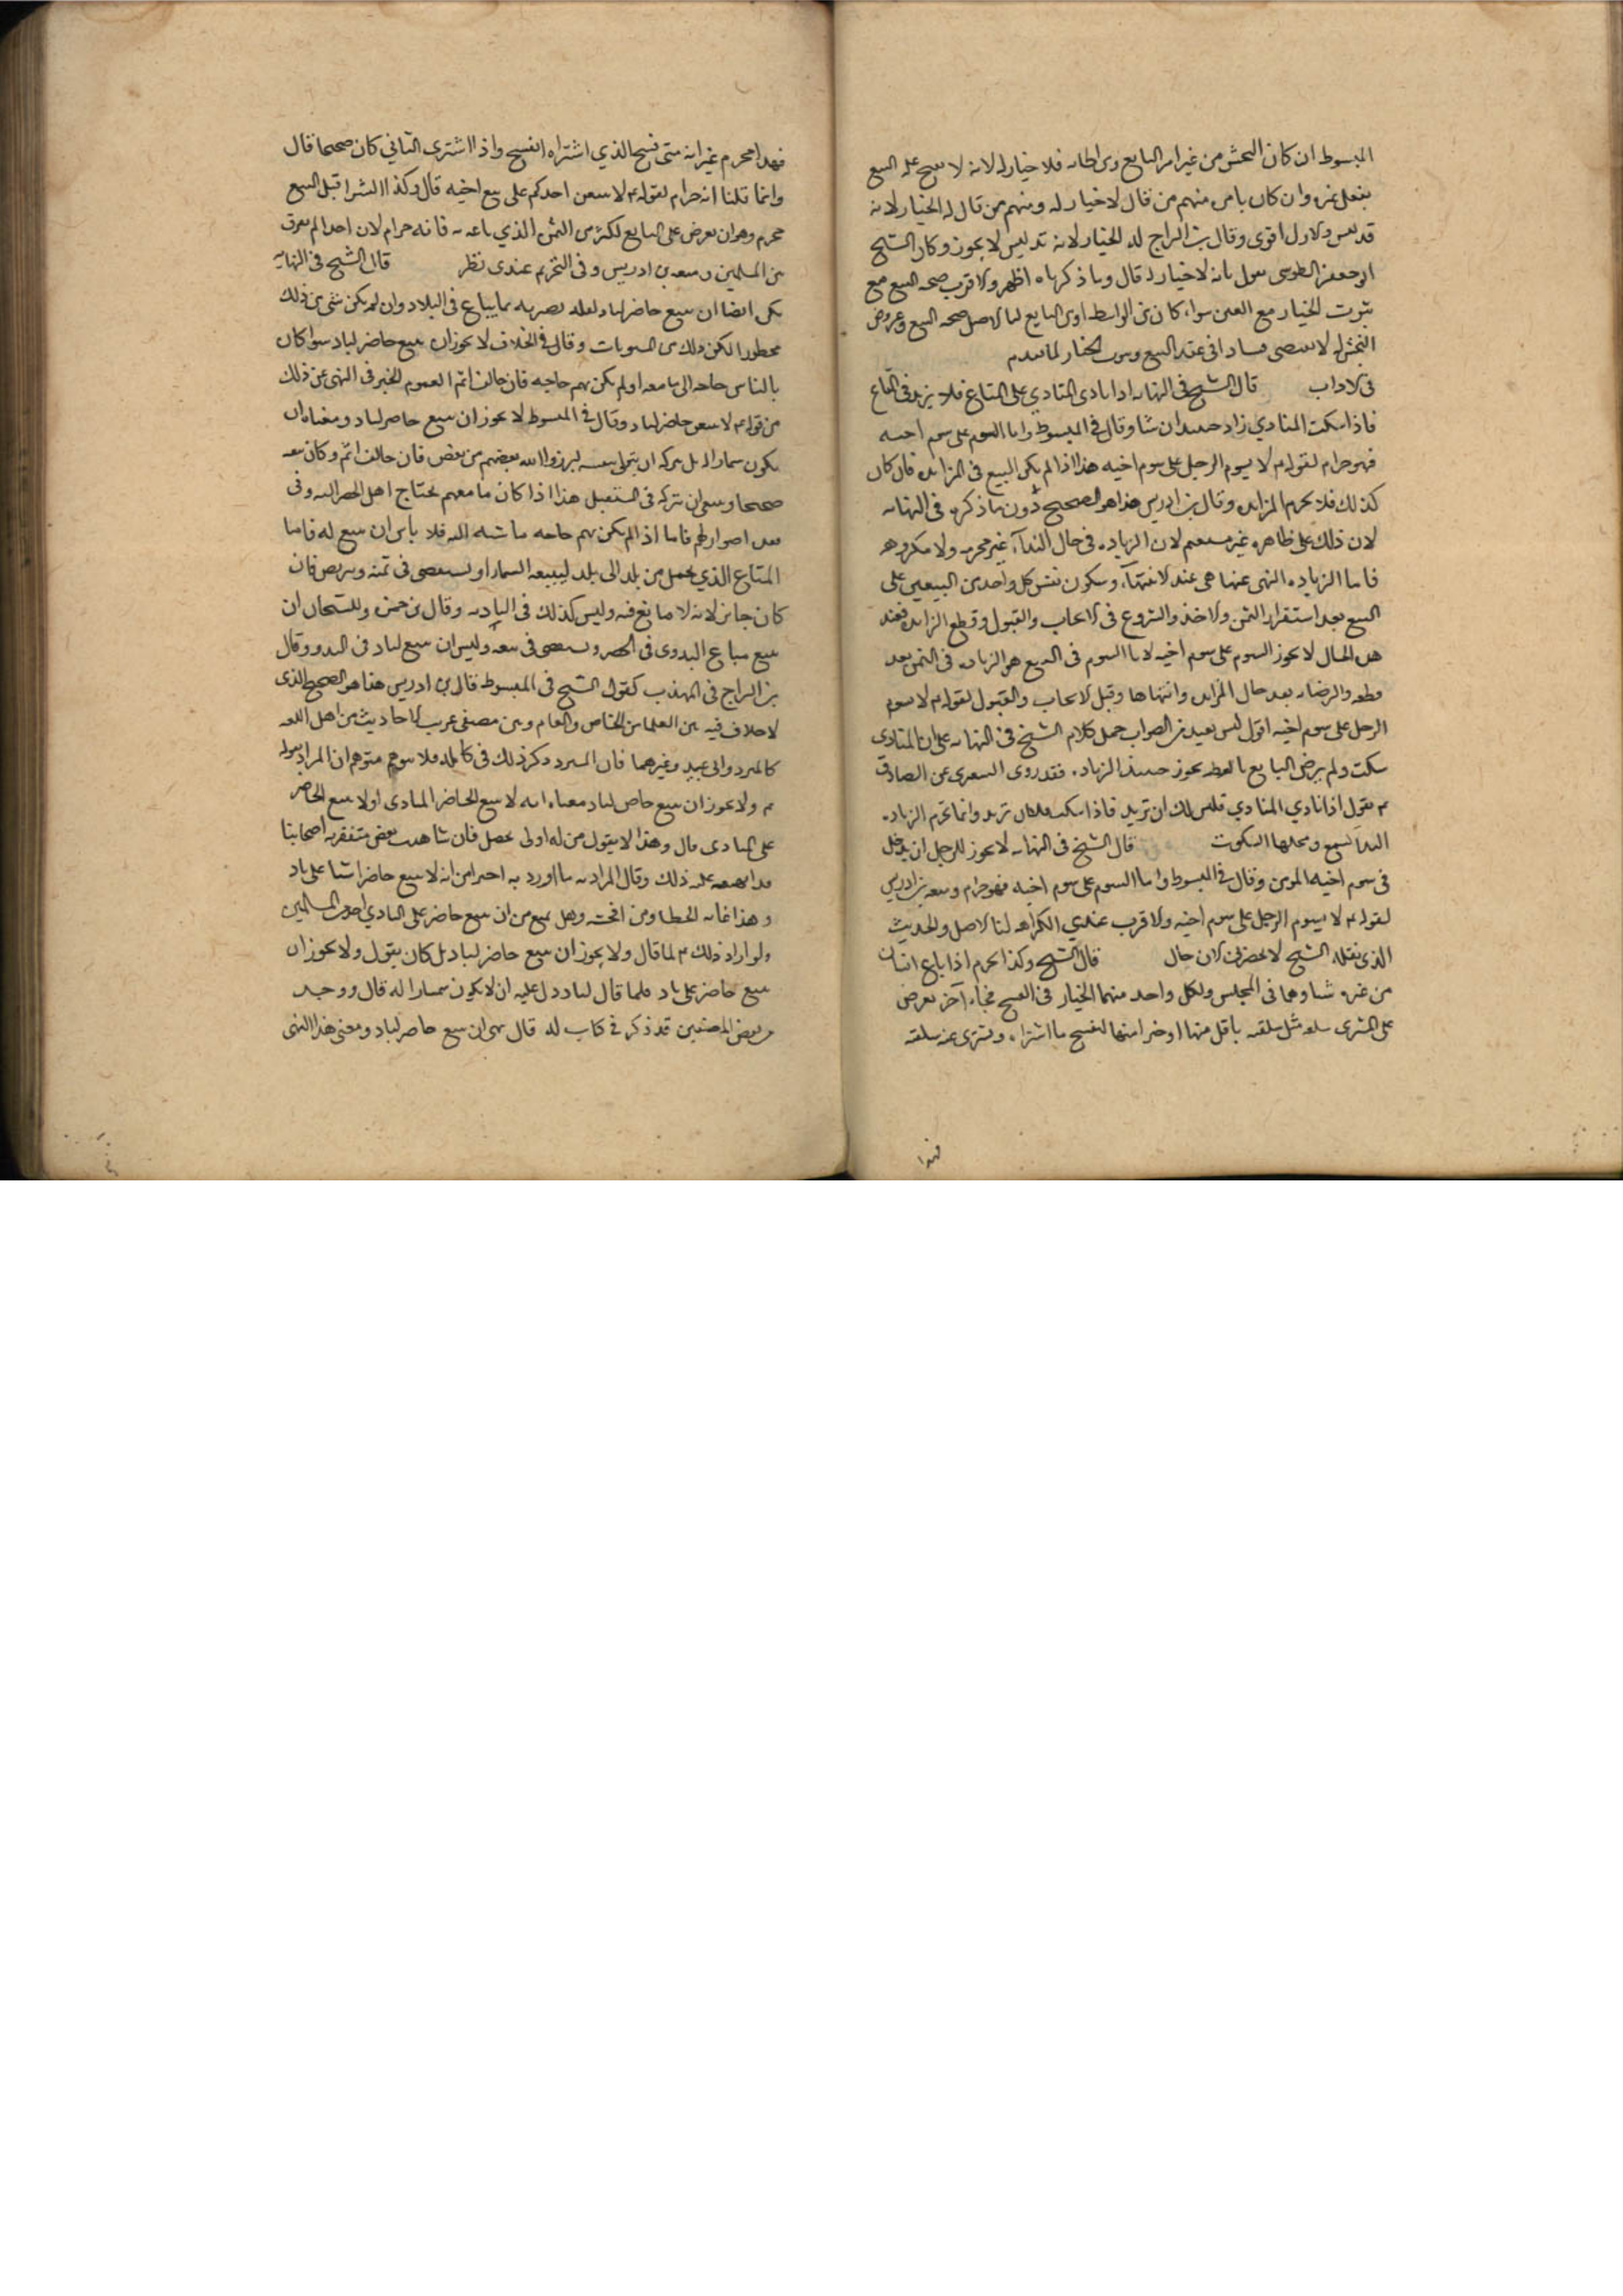 المبسوط ان كان النجش من غير امر البايع ومواطاته فلا خيار له لانه لا يفسخ عليه البيع
بفعل غيره وان كان بامره منهم من قال لا خيار له ومنهم من قال له الخيار لانه
تدليس والاول اقوى وقال بن البراج له الخيار لانه تدليس لا يجوز وكان الشيخ
ابو جعفر الطوسي يقول بانه لا خيار له قال وما ذكرناه اظهر والاقرب صحة البيع مع
ثبوت الخيار مع الغبن سواء كان من الواسطه او من البايع لنا الاصل صحة البيع وعروض
النجش له لا يقتضي فسادا في عقد البيع وثبوت الخيار لما تقدم
في الاداب قال الشيخ في النهايه اذا نادى المنادي على المتاع فلا يزيد في المتاع
فاذا سكت المنادي زاد حينئذ ان شا وقال في المبسوط واما السوم على سوم اخيه
فهو حرام لقوله م لا يسوم الرجل على سوم اخيه هذا اذا لم يكن المبيع في المزايده فان كان
كذلك فلا يحرم المزايده وقال بن ادريس هذا هو الصحيح دون ما ذكره في النهايه
لان ذلك على ظاهره غير مستقيم لان الزياده في حال النداء غير محرمه ولا مكروهه
فاما الزياده المنهي عنها هي عند الانتهاء وسكون نفس كل واحد من البيعين على
البيع بعد استقرار الثمن والاخذ والشروع في الايجاب والقبول وقطع المزايده فعند
هذه الحال لا يجوز السوم على سوم اخيه لان السوم في البيع هو الزياده في الثمن بعد
قطعه والرضا به بعد حال المزايده وانتهاها وقبل الايجاب والقبول لقوله م لا يسوم
الرجل على سوم اخيه اقول ليس بعيد من الصواب حمل كلام الشيخ في النهايه على ان المنادي
سكت ولم يرض البايع بالعطيه يجوز حينئذ الزياده فقد روى الشعيري عن الصادق
م يقول اذا نادي المنادي فليس لك ان تزيد فاذا سكت فلك ان تزيد وانما تحرم الزياده
النداء تسمع ويحلها السكوت قال الشيخ في النهايه لا يجوز للرجل ان يدخل
في سوم اخيه المومن وقال في المبسوط واما السوم على سوم اخيه فهو حرام وتبعه بن ادريس
لقوله م لا يسوم الرجل على سوم اخيه والاقرب عندي الكراهه لنا الاصل والحديث
الذي نقله الشيخ لا يحضرني الان حال قال الشيخ وكذا يحرم اذا باع انسان
من غيره شيا وهما في المجلس ولكل واحد منهما الخيار في الفسخ فجاء آخر يعرض
على المشترى سلعه مثل سلعته باقل منها او خيرا منها ليفسخ ما اشتراه ويشترى عنه سلعته
فهذا
فهذا محرم غير انه متى فسخ الذي اشتراه انفسخ واذا اشترى الثاني كان صحيحا قال
وانما قلنا انه حرام لقوله م لا يبيعن احدكم على بيع اخيه قال وكذا الشرا قبل البيع
محرم وهو ان يعرض على البايع اكثر من الثمن الذي باعه به فانه حرام لان احدا لم يفرق
من المسلمين وتبعه بن ادريس وفى التحريم عندى نظر قال الشيخ في النهايه
يكره ايضا ان يبيع حاضر لباد لقله بصيرته بما يباع في البلاد وان لم يكن شى من ذلك
محظورا لكن ذلك من المسنونات وقال في الخلاف لا يجوز ان يبيع حاضر لباد سوا كان
بالناس حاجه الى ما معه او لم يكن بهم حاجه فان خالف اثم العموم الخبر في النهى عن ذلك
من قوله م لا يبيعن حاضر لباد وقال في المبسوط لا يجوز ان يبيع حاضر لباد ومعناه ان
يكون سمسارا له بل يتركه ان يتولى بنفسه ليرزق الله بعضهم من بعض فان خالف اثم وكان بيعه
صحيحا وينبغى ان يتركه في المستقبل هذا اذا كان ما معهم يحتاج اهل الحضر اليه وفى
فقده اضرار لهم فاما اذا لم يكن بهم حاجه ماسه اليه فلا باس ان يبيع له فاما
المتاع الذي يحمل من بلد الى بلد ليبيعه السمسار ويستقصى في ثمنه ويتربص فان
كان جايز لانه لا مانع فيه وليس كذلك في الباديه وقال بن حمزه ولا يستحسن ان
يبيع متاع البدوى في الحضر ويستقصى في بيعه وليس ان يبيع لباد في البدو وقال
بن البراج في المهذب كقول الشيخ في المبسوط قال بن ادريس هذا هو الصحيح الذى
لا خلاف فيه بين العلما من الخاص والعام وبين مصنفى غريب الاحاديث من اهل اللغه
كالمبرد وابى عبيد وغيرهما فان المبرد ذكر ذلك في كامله فلا يتوهم متوهم ان المراد بقوله
م ولا يجوز ان يبيع حاضر لباد معناه انه لا يبيع الحاضر البادى او لا يبيع الحاضر
على البادى قال وهذا لا يقول من له اولى تحصيل فانى شاهدت بعض متفقهه اصحابنا
قد اشتبه عليه ذلك وقال المراد به ما اورد به اخبرا من انه لا يبيع حاضر شيا على باد
وهذا غايه الخطا ومن افحشه وهل يمنع من ان يبيع حاضر على البادي احد من المسلمين
ولو اراد ذلك م لما قال ولا يجوز ان يبيع حاضر لباد بل كان يقول ولا يجوز ان
يبيع حاضر على باد فلما قال لباد دل عليه ان لا يكون سمسارا له قال ووجدت
بعض المصنفين قد ذكر في كتاب له قال نهى ان يبيع حاضر لباد ومعنى هذا النهى